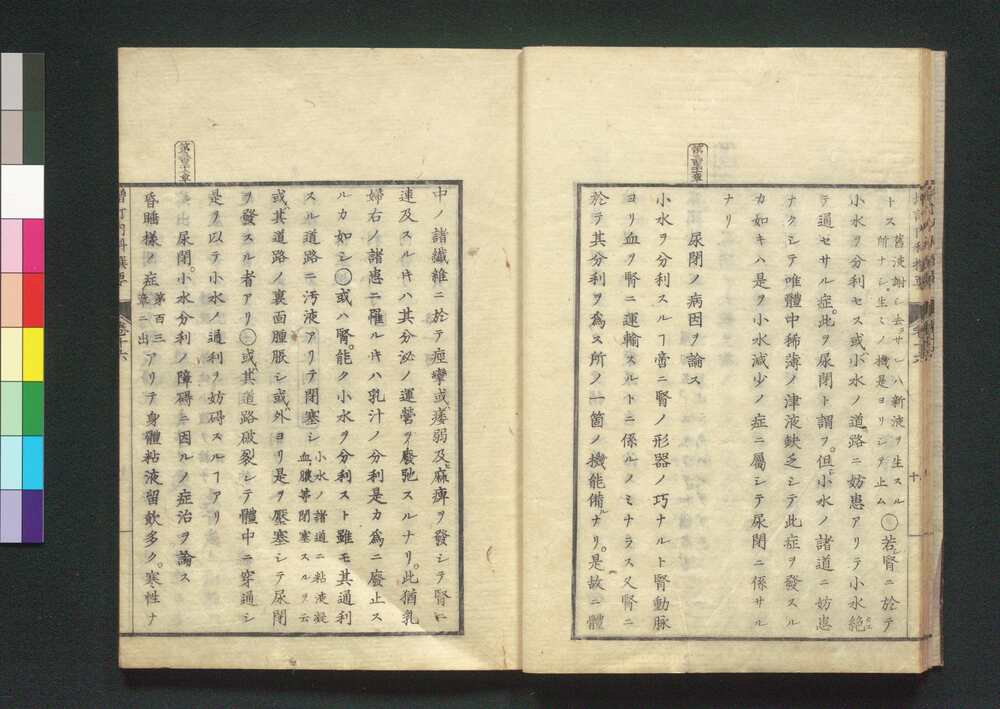 トス 舊液謝シ去ラサレハ新液ヲ生スル
所ナシ生々ノ機是ヨリシテ止ム ○若腎ニ於テ
小水ヲ分利セス或小水ノ道路ニ妨患アリテ小水絶
テ通セサル症。此ヲ尿閉ト謂フ。但小水ノ諸道ニ妨患
ナクシテ唯體中稀薄ノ津液缺乏シテ此症ヲ發スル
カ如キハ是ヲ小水減少ノ症ニ屬シテ尿閉ニ係サル
ナリ
尿閉ノ病因ヲ論ス
小水ヲ分利スルヿ啻ニ腎ノ形器ノ巧ナルト腎動脉
ヨリ血ヲ腎ニ運輸スルトニ係ルノミナラス又腎ニ
於テ其分利ヲ爲ス所ノ一箇ノ機能備ルナリ。是故ニ體
中ノ諸纖維ニ於テ痙攣或ハ痿弱及ヒ麻痺ヲ發シテ腎ニ
連及スルキハ其分泌ノ運營ヲ廢弛スルナリ。此猶乳
婦右ノ諸患ニ罹ルキハ乳汁ノ分利是カ爲ニ廢止ス
ルカ如シ○或ハ腎。能ク小水ヲ分利スト雖モ其通利
スル道路ニ汚液アリテ閉塞シ 小水ノ諸道ニ粘液凝
血膿等閉塞スルヲ云
或ハ其道路ノ裏面腫脹シ或ハ外ヨリ是ヲ壓塞シテ尿閉
ヲ發スル者アリ○或ハ其道路破裂シテ體中ニ穿通シ
是ヲ以テ小水ノ通利ヲ妨碍スルヿアリ
尿閉。小水分利ノ障碍ニ因ルノ症治ヲ論ス
昏睡樣ノ症 第百三
章ニ出 アリテ身體粘液留飲多ク。寒性ナ
増訂内科撰要
卷十六
十